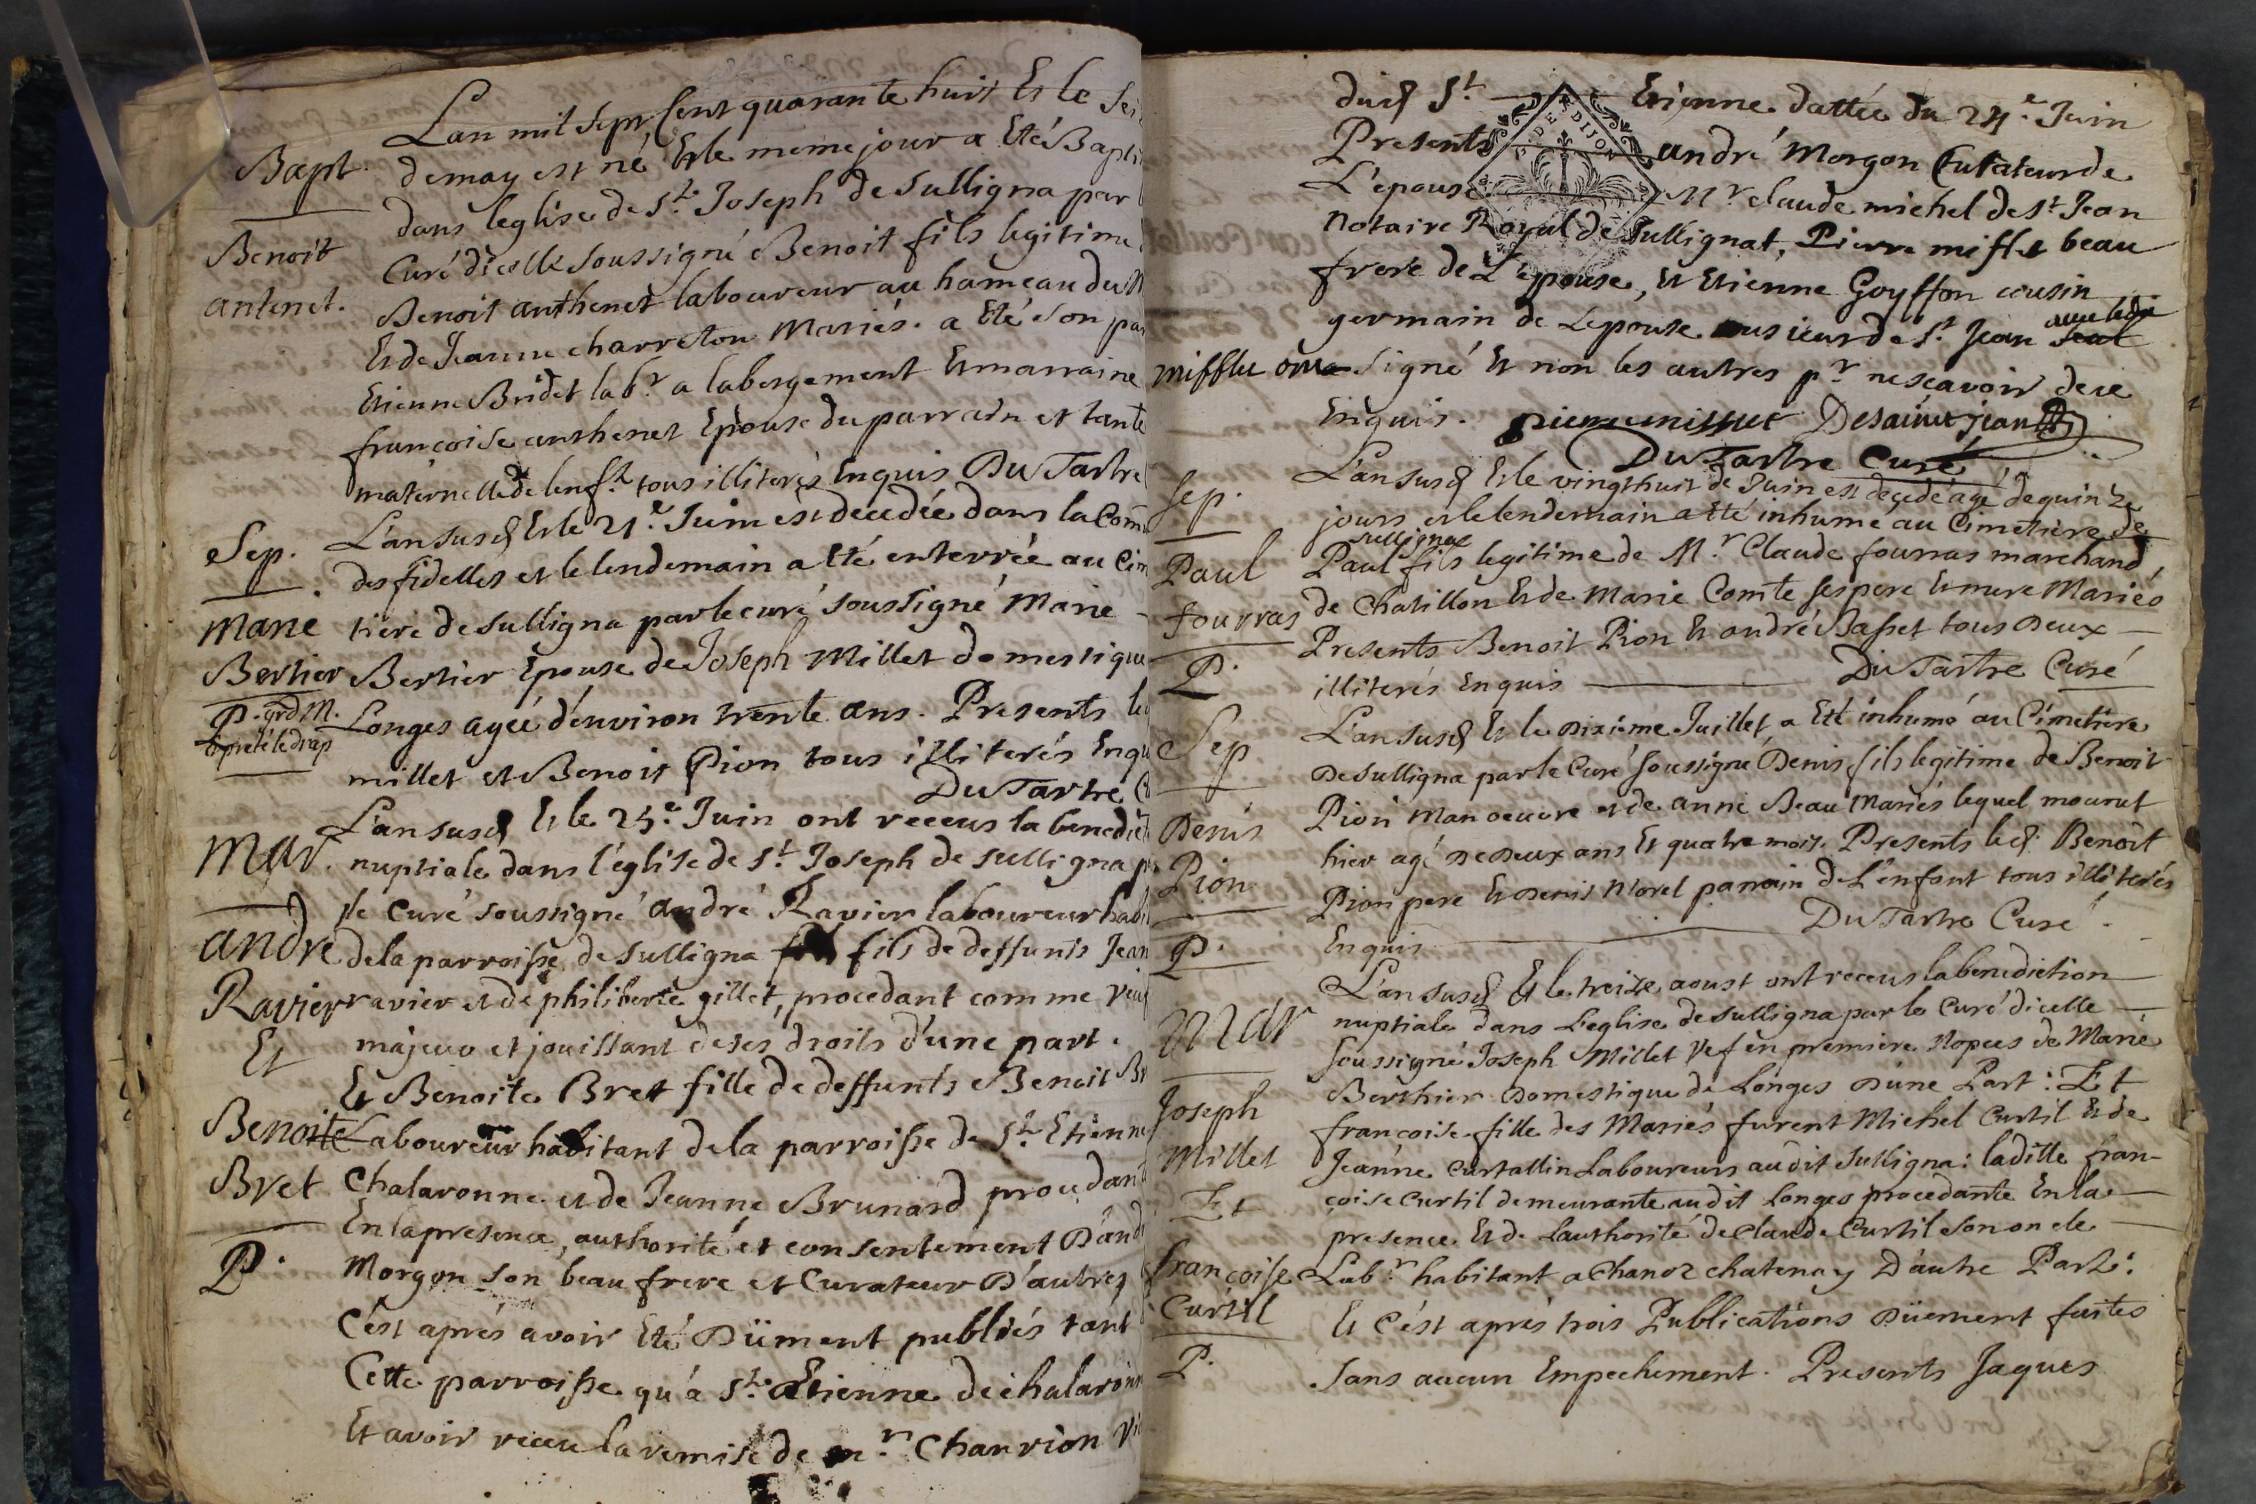 Lan mil sept Cent quarante huit Et le sei
Bapt. demay est né Et le meme jour a Eté Bapti
dans leglise de St. Joseph de Sulligna par l
Benoit Curé dicelle soussigné Benoit fils legitime
antenet. Benoit anthenet laboureur au hameau du
Et de Jeanne charreton Mariés. a Eté son par
Etienne Bridet labr. a labergement Et marraine
francoise anthenet Epouse du parrain et tante
maternelle de lenft. tous illiterés Enquis DuTartre
Sep. L'an susd Et le 21e. Juin est decedée dans la Com
des fidelles et le lendemain a Eté enterrée au Cim
Marie tiere de Sulligna par le curé soussigné Marie
Bertier Bertier Epouse de Joseph Millet domestique
P. grd M. Longes agée d'environ trente ans. Presents le
a preté le drap millet et Benoit Pion tous illiterés Enqu
DuTartre C
Mar. L'an susd Et le 25e. Juin ont receus la benedict
nuptiale dans l'église de St. Joseph de Sulligna p
le Curé soussigné andré Ravier laboureur habi
andré de la parroisse de Sulligna fils de deffunts Jean
Ravier ravier et de philiberte gillet, procedant comme veuf
Et majeur et jouissant de ses droits d'une part.
Et Benoite Bret fille de deffunts Benoit Br
Benoite Laboureur habitant de la parroisse de St. Etienne
Bret Chalaronne et de Jeanne Brunard procedant
En la presence, authorité et consentement D'and
P. Morgon son beau frere et Curateur D'autres
C'est aprés avoir Eté Düment publiés tant
Cette parroisse qu'a St. Etienne de chalaronn
Et avoir receu la remise de Mr. Chanrion Vi
dud St. Etienne dattée du 24e. Juin
Presents andré Morgon Curateur de
L'epouse Mr. claude michel de St Jean
DE DIJON
notaire Royal de Sullignat, Pierre mifflet beau
frere de L'epouse, Et Etienne Goyffon cousin
germain de Lepouse le sieur de St. Jean avec ledit
Mifflet ont signé Et non les autres pr. ne scavoir de ce
Enquis. pierre mifflet Desaint jean
DuTartre Curé
Sep. L'an susd Et le vingthuit de Juin est decedé agé de quinze
jours et le lendemain a Eté inhumé au Cimetiere de
sulligna
Paul Paul fils legitime de Mr. Claude fourras marchand,
fourras de Chatillon Et de Marie Comte ses pere Et mere Mariés
Presents Benoit Pion Et andré Basset tous Deux
P. illiterés Enquis DuTartre Curé
Sep L'an susd Et le Dixième Juillet, a Eté inhumé au Cimetiere
De Sulligna par le Curé soussigné Denis fils legitime de Benoit
Denis Pion Manoeuvre et de anne Beau Mariés lequel mourut
Pion hier agé de Deux ans Et quatre mois. Presents led. Benoit
Pion pere Et Denis Morel parrain de L'enfant tous illiterés
P. Enquis DuTartre Curé.
L'an susd Et le treize aoust ont receus la benediction
Mar nuptiale dans L'eglise de Sulligna par le Curé dicelle
soussigné Joseph Millet Vef en premiere Nopces de Marie
Joseph Berthier Domestique de Longes D'une Part: Et
Millet francoise fille des Mariés furent Michel Curtil Et de
Et Jeanne Curtallin Laboureurs audit Sulligna: laditte fran-
coise Curtil demeurante audit Longes procedante En la
presence Et de Lauthorité de Claude Curtil son oncle
francoise Labr. habitant a Chanoz chatenay D'autre Part:
Curtil Et C'est aprés trois Publications Düement faites
P. sans aucun Empechement. Presents Jaques